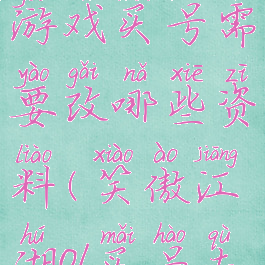 游戏买号需
yào gǎi nǎ xiē zī
要改哪些资
liào xiào ào jiāng
料(笑傲江
hú mǎi hào qù
湖OL买号去